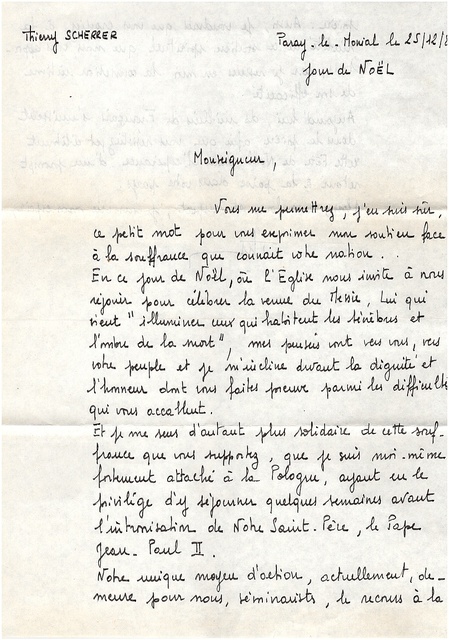 Thierry SCHERRER
Paray-le-Monial le 25/12/8
Jour de NOËL
Monseigneur,
Vous me permettrez, j'en suis sûr,
ce petit mot pour vous exprimer mon soutien face
à la souffrance que connaît votre nation...
En ce jour de Noël, où l'Église nous invite à nous
réjouir pour célébrer la venue du Messie, Lui qui
vient "illuminer ceux qui habitent les ténèbres et
l'ombre de la mort", mes pensées vont vers vous, vers
votre peuple et je m'incline devant la dignité et
l'honneur dont vous faites preuve parmi les difficulté
qui vous accablent.
Et je me sens d'autant plus solidaire de cette souf-
france que vous supportez, que je suis moi-même
fortement attaché à la Pologne, ayant eu le
privilège d'y séjourner quelques semaines avant
l'intronisation de Notre Saint-Père, le Pape
Jean-Paul II.
Notre unique moyen d'action, actuellement, de-
meure pour nous, séminaristes, le recours à la